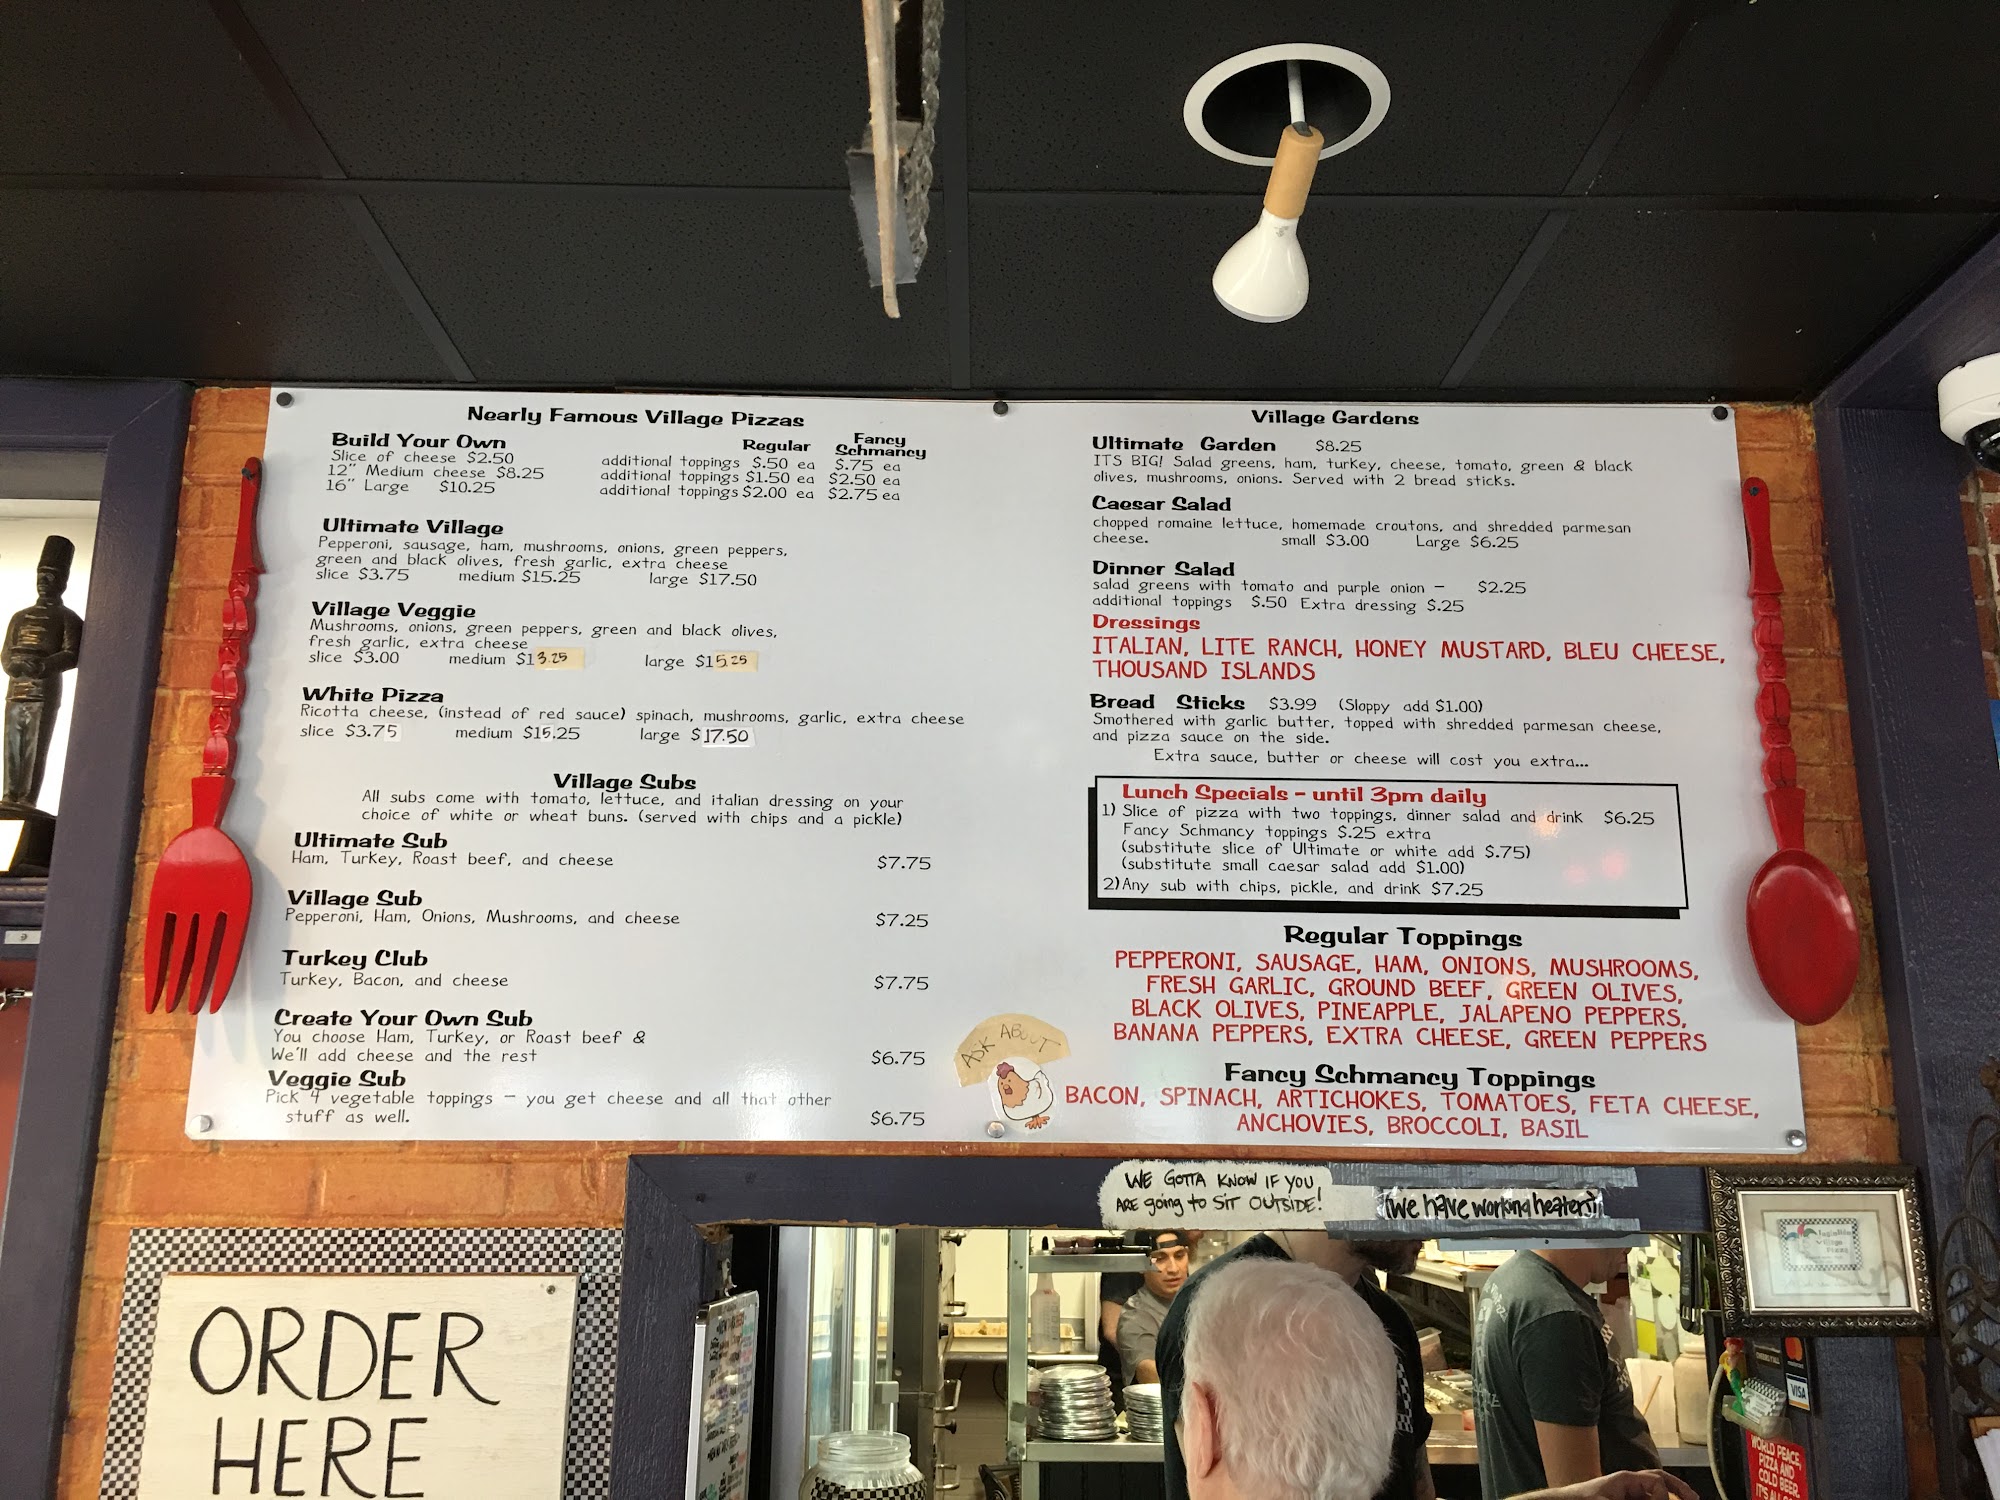 Nearly Famous Village Pizzas
Build Your Own Regular Fancy Schmancy
Slice of cheese $2.50 additional toppings $.50 ea $.75 ea
12" Medium cheese $8.25 additional toppings $1.50 ea $2.50 ea
16" Large $10.25 additional toppings $2.00 ea $2.75 ea
Ultimate Village
Pepperoni, sausage, ham, mushrooms, onions, green peppers,
green and black olives, fresh garlic, extra cheese
slice $3.75 medium $15.25 large $17.50
Village Veggie
Mushrooms, onions, green peppers, green and black olives,
fresh garlic, extra cheese
slice $3.00 medium $13.25 large $15.25
White Pizza
Ricotta cheese, (instead of red sauce) spinach, mushrooms, garlic, extra cheese
slice $3.75 medium $15.25 large $17.50
Village Subs
All subs come with tomato, lettuce, and italian dressing on your
choice of white or wheat buns. (served with chips and a pickle)
Ultimate Sub
Ham, Turkey, Roast beef, and cheese $7.75
Village Sub
Pepperoni, Ham, Onions, Mushrooms, and cheese $7.25
Turkey Club
Turkey, Bacon, and cheese $7.75
Create Your Own Sub
You choose Ham, Turkey, or Roast beef &
We'll add cheese and the rest $6.75
Veggie Sub
Pick 4 vegetable toppings – you get cheese and all that other
stuff as well. $6.75
ASK ABOUT
Village Gardens
Ultimate Garden $8.25
ITS BIG! Salad greens, ham, turkey, cheese, tomato, green & black
olives, mushrooms, onions. Served with 2 bread sticks.
Caesar Salad
chopped romaine lettuce, homemade croutons, and shredded parmesan
cheese. small $3.00 Large $6.25
Dinner Salad
salad greens with tomato and purple onion – $2.25
additional toppings $.50 Extra dressing $.25
Dressings
ITALIAN, LITE RANCH, HONEY MUSTARD, BLEU CHEESE,
THOUSAND ISLANDS
Bread Sticks $3.99 (Sloppy add $1.00)
Smothered with garlic butter, topped with shredded parmesan cheese,
and pizza sauce on the side.
Extra sauce, butter or cheese will cost you extra...
Lunch Specials – until 3pm daily
1) Slice of pizza with two toppings, dinner salad and drink $6.25
Fancy Schmancy toppings $.25 extra
(substitute slice of Ultimate or white add $.75)
(substitute small caesar salad add $1.00)
2) Any sub with chips, pickle, and drink $7.25
Regular Toppings
PEPPERONI, SAUSAGE, HAM, ONIONS, MUSHROOMS,
FRESH GARLIC, GROUND BEEF, GREEN OLIVES,
BLACK OLIVES, PINEAPPLE, JALAPENO PEPPERS,
BANANA PEPPERS, EXTRA CHEESE, GREEN PEPPERS
Fancy Schmancy Toppings
BACON, SPINACH, ARTICHOKES, TOMATOES, FETA CHEESE,
ANCHOVIES, BROCCOLI, BASIL
WE GOTTA KNOW IF YOU
ARE going to SIT OUTSIDE!
(we have working heaters)
ORDER
HERE
Village
Pizza
mastercard
VISA
WORLD PEACE,
PIZZA AND
COLD BEER.
IT'S ALL